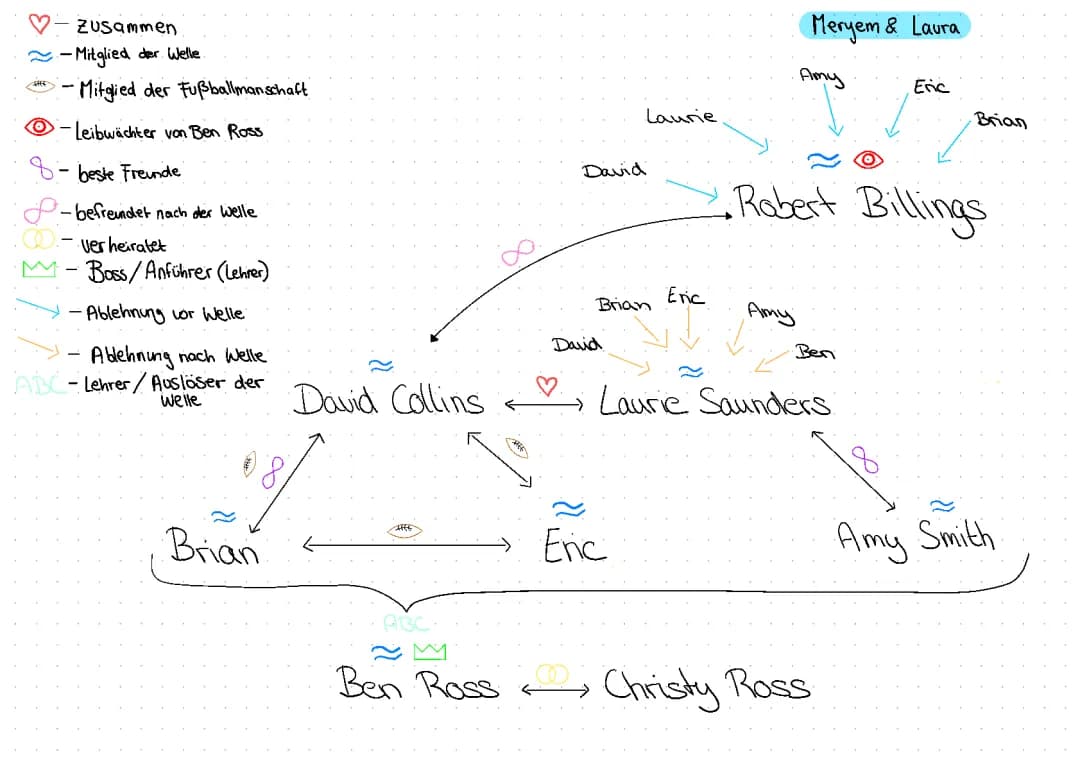 – Zusammen
– Mitglied der Welle
– Mitglied der Fußballmanschaft
– Leibwächter von Ben Ross
– beste Freunde
– befreundet nach der Welle
– verheiratet
– Boss/Anführer (Lehrer)
– Ablehnung vor Welle
– Ablehnung nach Welle
ABC – Lehrer/Auslöser der
Welle
Meryem & Laura
Amy
Eric
Laurie
Brian
David
Robert Billings
Brian
Eric
Amy
David
Ben
David Collins
Laurie Saunders
Brian
Eric
Amy Smith
ABC
Ben Ross
Christy Ross